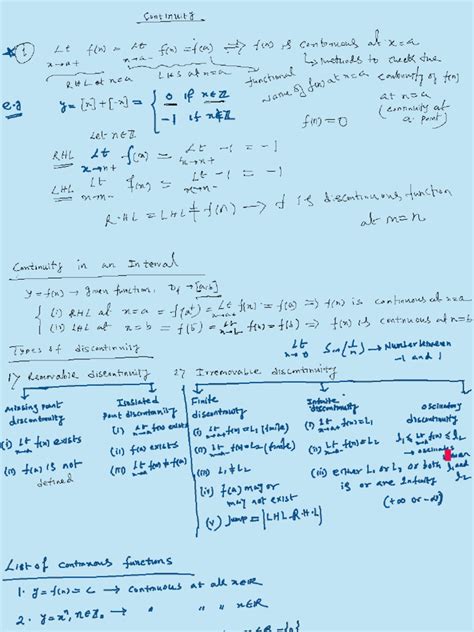 Continuity
① Lt x→a+ f(x) = Lt x→a- f(x) = f(a) ⇒ f(x) is continuous at x=a
RHL at x=a LHL at x=a functional value of f(x) at x=a
↳ methods to check the continuity of f(x) at x=a (continuity at a point)
e.g y = [x]+[-x] = { 0 if x∈Z
-1 if x∉Z
f(n)=0
Let n∈Z
RHL Lt x→n+ f(x) = Lt x→n+ -1 = -1
LHL Lt x→n- f(x) = Lt x→n- -1 = -1
RHL = LHL ≠ f(n) → f is discontinuous function at x=n
Continuity in an Interval
y = f(x) → given function. Df → [a,b]
(i) RHL at x=a = f(a+) = Lt x→a+ f(x) = f(a) ⇒ f(x) is continuous at x=a
(ii) LHL at x=b = f(b-) = Lt x→b- f(x) = f(b) ⇒ f(x) is continuous at x=b
Types of discontinuity
Lt x→0 Sin(1/x) → Number between -1 and 1
1) Removable discontinuity 2) Irremovable discontinuity
Missing point discontinuity
(i) Lt x→a f(x) exists
(ii) f(a) is not defined
Isolated point discontinuity
(i) Lt x→a f(x) exists
(ii) f(a) exists
(iii) Lt x→a f(x) ≠ f(a)
Finite discontinuity
(i) Lt x→a+ f(x) = L₁ (finite)
(ii) Lt x→a- f(x) = L₂ (finite)
(iii) L₁ ≠ L₂
(iv) f(a) may or may not exist
(v) jump = |LHL - R.H.L|
Infinite discontinuity
(i) Lt x→a+ f(x) = L₁
(ii) Lt x→a- f(x) = L₂
(iii) either L₁ or L₂ or both is or are Infinity
(+∞ or -∞)
Oscillatory discontinuity
l₁ ≤ Lt x→a f(x) ≤ l₂
→ oscillates
l₁ and l₂
List of continuous functions
1. y = f(x) = c → continuous at all x∈R
2. y = xⁿ, n∈Z. → " " " x∈R